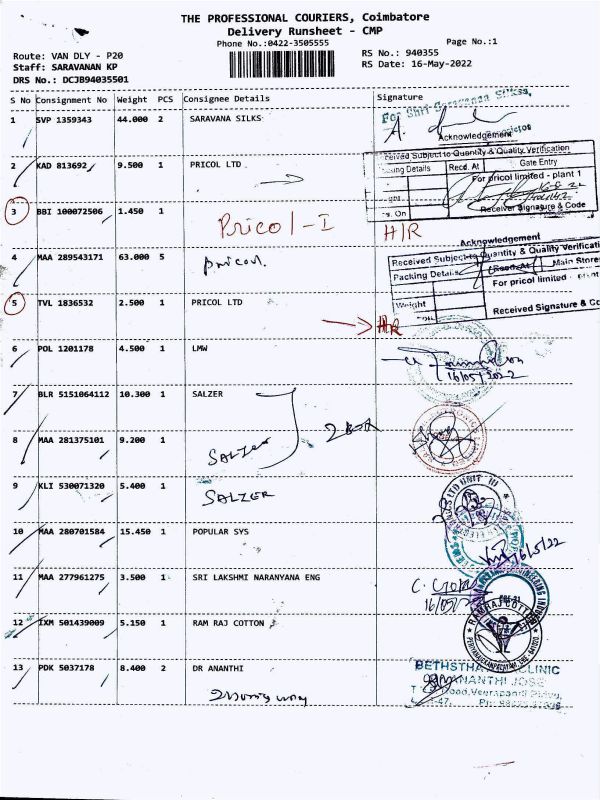 THE PROFESSIONAL COURIERS, Coimbatore
Delivery Runsheet - CMP
Phone No.:0422-3505555
Page No.:1
Route: VAN DLY - P20
RS No.: 940355
Staff: SARAVANAN KP
RS Date: 16-May-2022
DRS No.: DCJB94035501
S No Consignment No Weight PCS Consignee Details Signature
For Shri Saravana Silks,
1 SVP 1359343 44.000 2 SARAVANA SILKS
A.
Acknowledgement
Received Subject to Quantity & Quality Verification
2 KAD 813692 9.500 1 PRICOL LTD
Packing Details Recd. At Gate Entry
For pricol limited - plant 1
Receiver Signature & Code
3 BBI 100072506 1.450 1
Pricol - I H/R
Acknowledgement
4 MAA 289543171 63.000 5 pricol.
Received Subject to Quantity & Quality Verificati
Packing Details Recd. At Main Stores
For pricol limited - plant
5 TVL 1836532 2.500 1 PRICOL LTD
Weight
Received Signature & Co
H/R
6 POL 1201178 4.500 1 LMW
16/05/2022
7 BLR 5151064112 10.300 1 SALZER
8 MAA 281375101 9.200 1 SALZER
9 KLI 530071320 5.400 1 SALZER
UNIT III
10 MAA 280701584 15.450 1 POPULAR SYS
16/5/22
11 MAA 277961275 3.500 1 SRI LAKSHMI NARANYANA ENG
C. Gopi
16/05/
12 IXM 501439009 5.150 1 RAM RAJ COTTON
RAMRAJ COTTON
13 PDK 5037178 8.400 2 DR ANANTHI
BETHSTHA CLINIC
ANANTHI JOSE
Road, Veerapandi Pirivu,
-47.